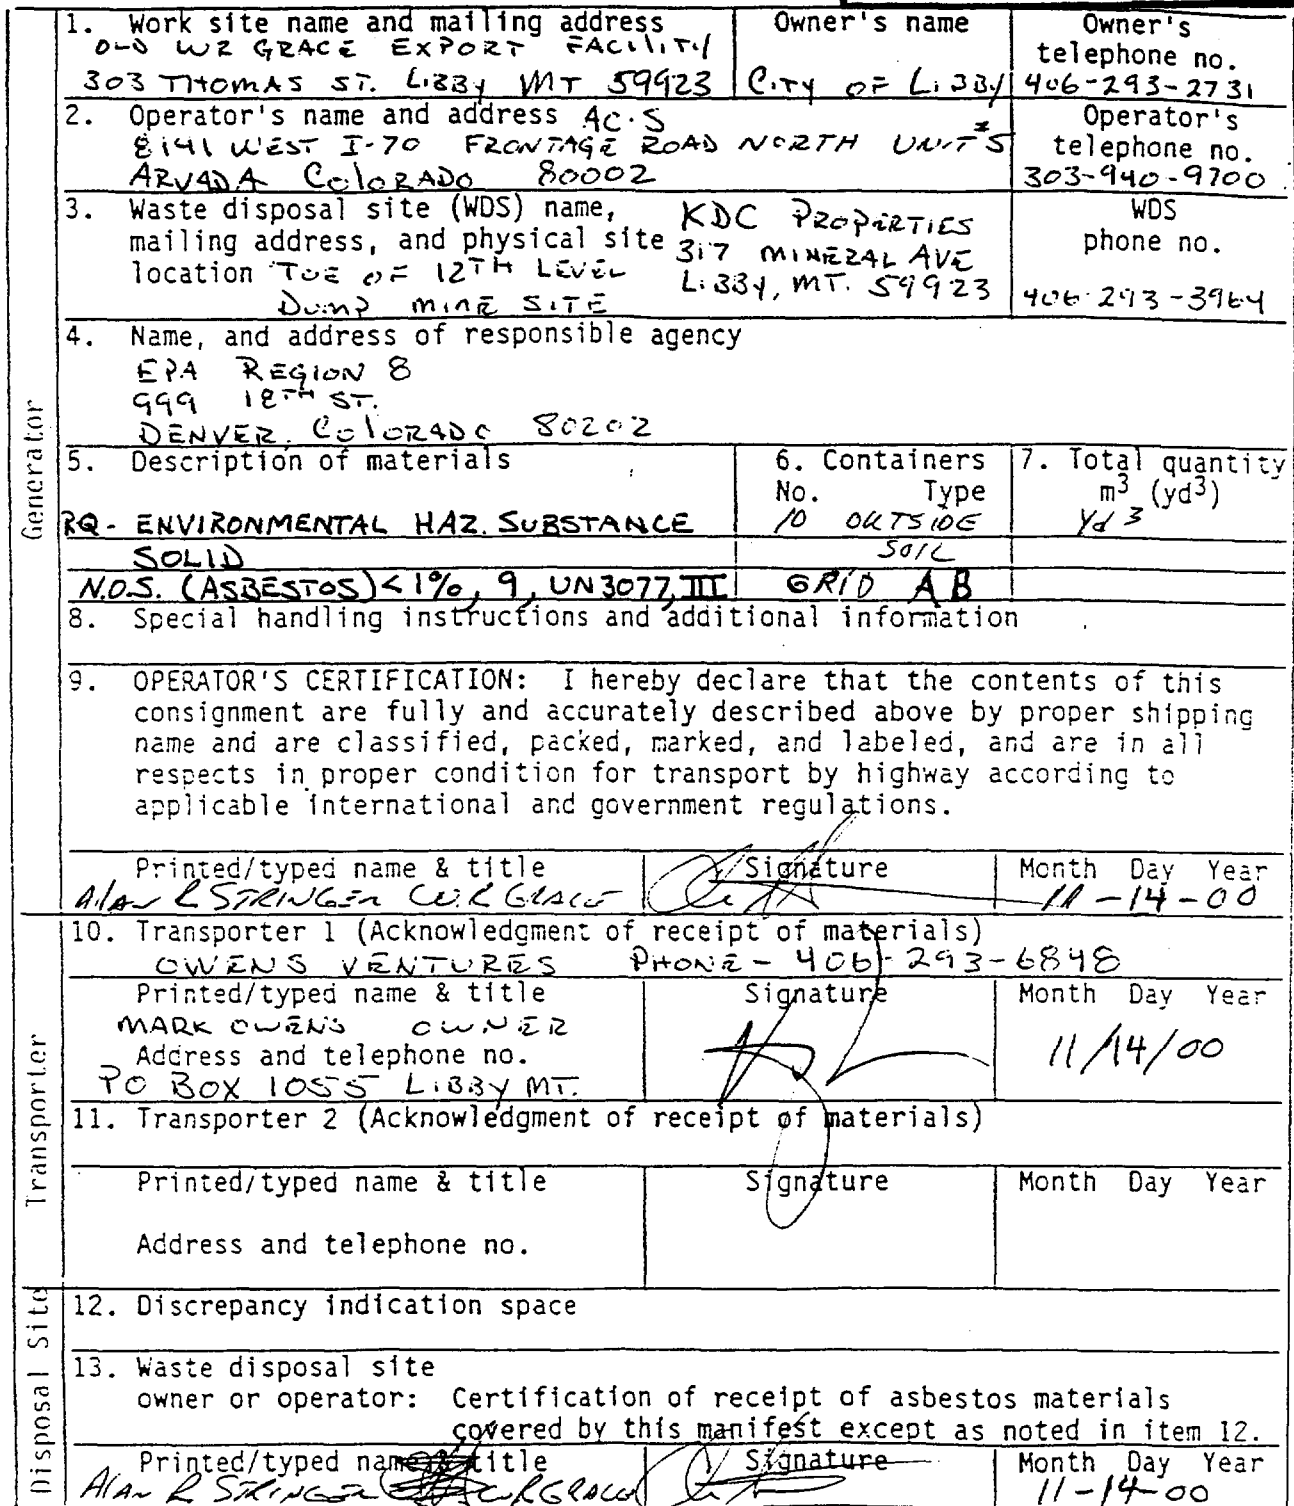 1. Work site name and mailing address
OLD WR GRACE EXPORT FACILITY
303 THOMAS ST. LIBBY MT 59923
Owner's name
CITY OF LIBBY
Owner's
telephone no.
406-293-2731
2. Operator's name and address AC·S
8141 WEST I-70 FRONTAGE ROAD NORTH UNIT #5
ARVADA COLORADO 80002
Operator's
telephone no.
303-940-9700
3. Waste disposal site (WDS) name,
mailing address, and physical site
location TOE OF 12TH LEVEL
DUMP MINE SITE
KDC PROPERTIES
317 MINERAL AVE
LIBBY, MT. 59923
WDS
phone no.
406-293-3964
Generator
4. Name, and address of responsible agency
EPA REGION 8
999 18TH ST.
DENVER, COLORADO 80202
5. Description of materials
6. Containers
No. Type
7. Total quantity
m3 (yd3)
RQ - ENVIRONMENTAL HAZ. SUBSTANCE
10 OUTSIDE
Yd 3
SOLID
SOIL
N.O.S. (ASBESTOS) < 1%, 9, UN3077, III
GRID AB
8. Special handling instructions and additional information
9. OPERATOR'S CERTIFICATION: I hereby declare that the contents of this
consignment are fully and accurately described above by proper shipping
name and are classified, packed, marked, and labeled, and are in all
respects in proper condition for transport by highway according to
applicable international and government regulations.
Printed/typed name & title
Alan R STRINGER W.R GRACE
Signature
Month Day Year
11-14-00
Transporter
10. Transporter 1 (Acknowledgment of receipt of materials)
OWENS VENTURES PHONE - 406-293-6848
Printed/typed name & title
MARK OWENS OWNER
Address and telephone no.
PO BOX 1055 LIBBY MT.
Signature
Month Day Year
11/14/00
11. Transporter 2 (Acknowledgment of receipt of materials)
Printed/typed name & title
Address and telephone no.
Signature
Month Day Year
Disposal Site
12. Discrepancy indication space
13. Waste disposal site
owner or operator: Certification of receipt of asbestos materials
covered by this manifest except as noted in item 12.
Printed/typed name & title
Alan R STRINGER W R GRACE
Signature
Month Day Year
11-14-00